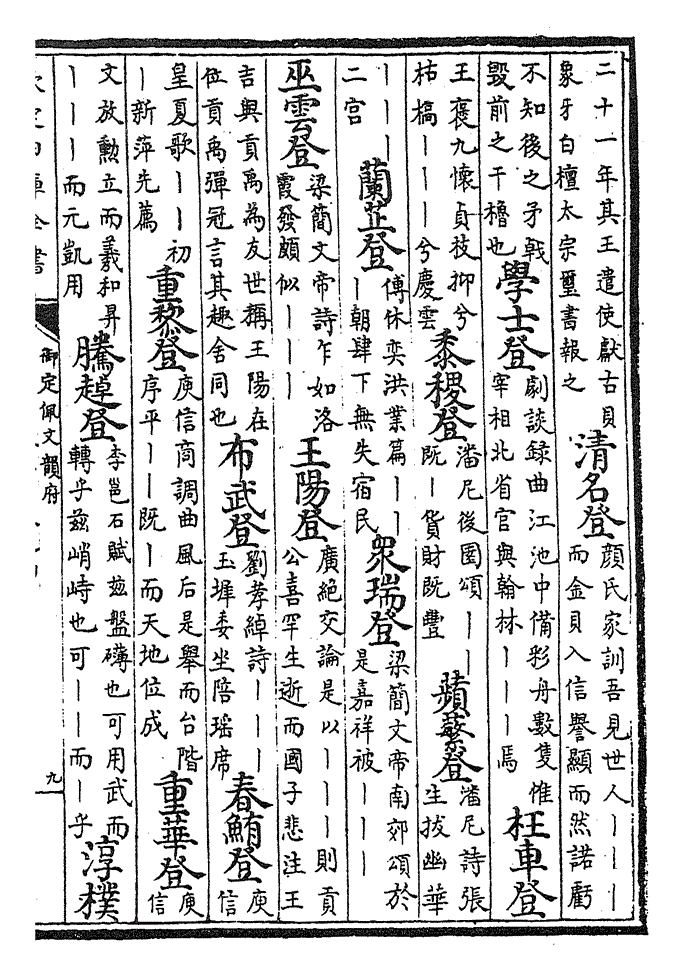 二十一年其王遣使獻古貝
象牙白檀太宗璽書報之
清名登
顔氏家訓吾見世人丨丨丨
而金貝入信譽顯而然諾虧
不知後之矛戟
毁前之干櫓也
學士登
劇談録曲江池中備彩舟數隻惟
宰相北省官與翰林丨丨丨焉
枉車登
王襃九懷貞枝抑兮
枯槁丨丨丨兮慶雲
黍稷登
潘尼後園頌丨丨
既丨貨財既豐
蘋蘩登
潘尼詩張
生拔幽華
丨丨丨
二宮
蘭芷登
傅休奕洪業篇丨丨
丨朝肆下無失宿民
衆瑞登
梁簡文帝南郊頌於
是嘉祥被丨丨丨
巫雲登
梁簡文帝詩乍如洛
霞發頗似丨丨丨
王陽登
廣絶交論是以丨丨丨則貢
公喜罕生逝而國子悲注王
吉與貢禹為友世稱王陽在
位貢禹彈冠言其趣舍同也
布武登
劉孝綽詩丨丨丨
玉墀委坐陪瑶席
春鮪登
庾
信
皇夏歌丨丨初
丨新萍先薦
重黎登
庾信商調曲風后是舉而台階
序平丨丨既丨而天地位成
重華登
庾
信
文放勲立而羲和昇
丨丨丨而元凱用
騰趠登
李邕石賦兹盤礴也可用武而
轉乎兹峭峙也可丨丨而丨乎
淳樸
御定佩文韻府
九